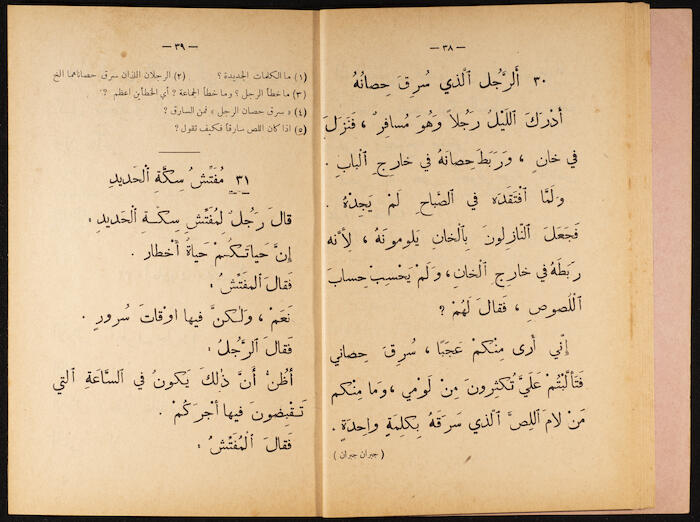 — ٣٨ —
٣٠ أَلرَّجُل ٱلَّذي سُرِقَ حِصانُهُ
أَدْرَكَ اللَّيْلُ رَجُلاً وَهُوَ مُسافِرٌ ، فَنَزَلَ
في خانٍ ، وَرَبَطَ حِصانَهُ في خارِجِ ٱلْبابِ .
وَلَمَّا ٱفْتَقَدَه في ٱلصَّباحِ لَمْ يَجِدْهُ .
فَجَعَلَ ٱلنَّازِلونَ بِٱلْخانِ يَلومونَهُ ، لِأَنَّه
رَبَطَهُ في خارِجِ ٱلْخانِ ، وَلَمْ يَحْسِبْ حِسابَ
ٱللُّصوصِ ، فَقالَ لَهُمْ ؟
إِنِّي أَرى مِنْكمْ عَجَبًا ، سُرِقَ حِصاني
فَتَأَلَّبْتُم عَلَيَّ تُكْثِرونَ مِنْ لَوْمي ، وَما مِنْكم
مَنْ لامَ ٱللِّصَّ ٱلَّذي سَرَقَهُ بِكَلِمَةٍ واحِدَةٍ .
( جبران جبران )
— ٣٩ —
(١) ما الكلمات الجديدة ؟ (٢) الرجلان اللذان سرق حصاناهما الخ
(٣) ما خطأ الرجل ؟ وما خطأ الجماعة ؟ أي الخطأين اعظم ؟
(٤) « سرق حصان الرجل » فمن السارق ؟
(٥) اذا كان اللص سارقاً فكيف تقول ؟
٣١ مُفَتِّشُ سِكَّةِ ٱلْحَديدِ
قالَ رَجُلٌ لِمُفَتِّشِ سِكَّةِ ٱلْحَديدِ :
إِنَّ حَياتَكُمْ حَياةُ أَخْطار .
فَقالَ ٱلمُفَتِّشُ :
نَعَمْ ، وَلٰكنَّ فيها اوْقاتَ سُرورٍ .
فَقالَ ٱلرَّجُلُ :
أَظُنُّ أَنَّ ذٰلِكَ يَكونُ في ٱلسَّاعَةِ ٱلتي
تَقْبِضونَ فيها أَجْرَكُمْ .
فَقالَ ٱلْمُفَتِّشُ :